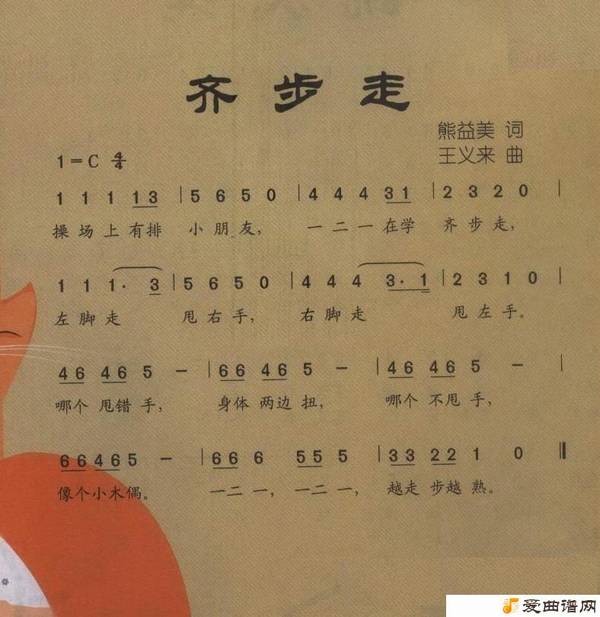 齐步走
熊益美 词
1=C 4/4 王义来 曲
1 1 1 13 | 5 6 5 0 | 4 4 4 31 | 2 3 2 0 |
操场上有排 小朋友, 一二一在学 齐步走,
1 1 1· 3 | 5 6 5 0 | 4 4 4 3·1 | 2 3 1 0 |
左脚走 甩右手, 右脚走 甩左手。
46 46 5 – | 66 46 5 – | 46 46 5 – |
哪个甩错手, 身体两边扭, 哪个不甩手,
66465 – | 66 6 55 5 | 33 22 1 0 ‖
像个小木偶。 一二一,一二一, 越走步越熟。
爱曲谱网